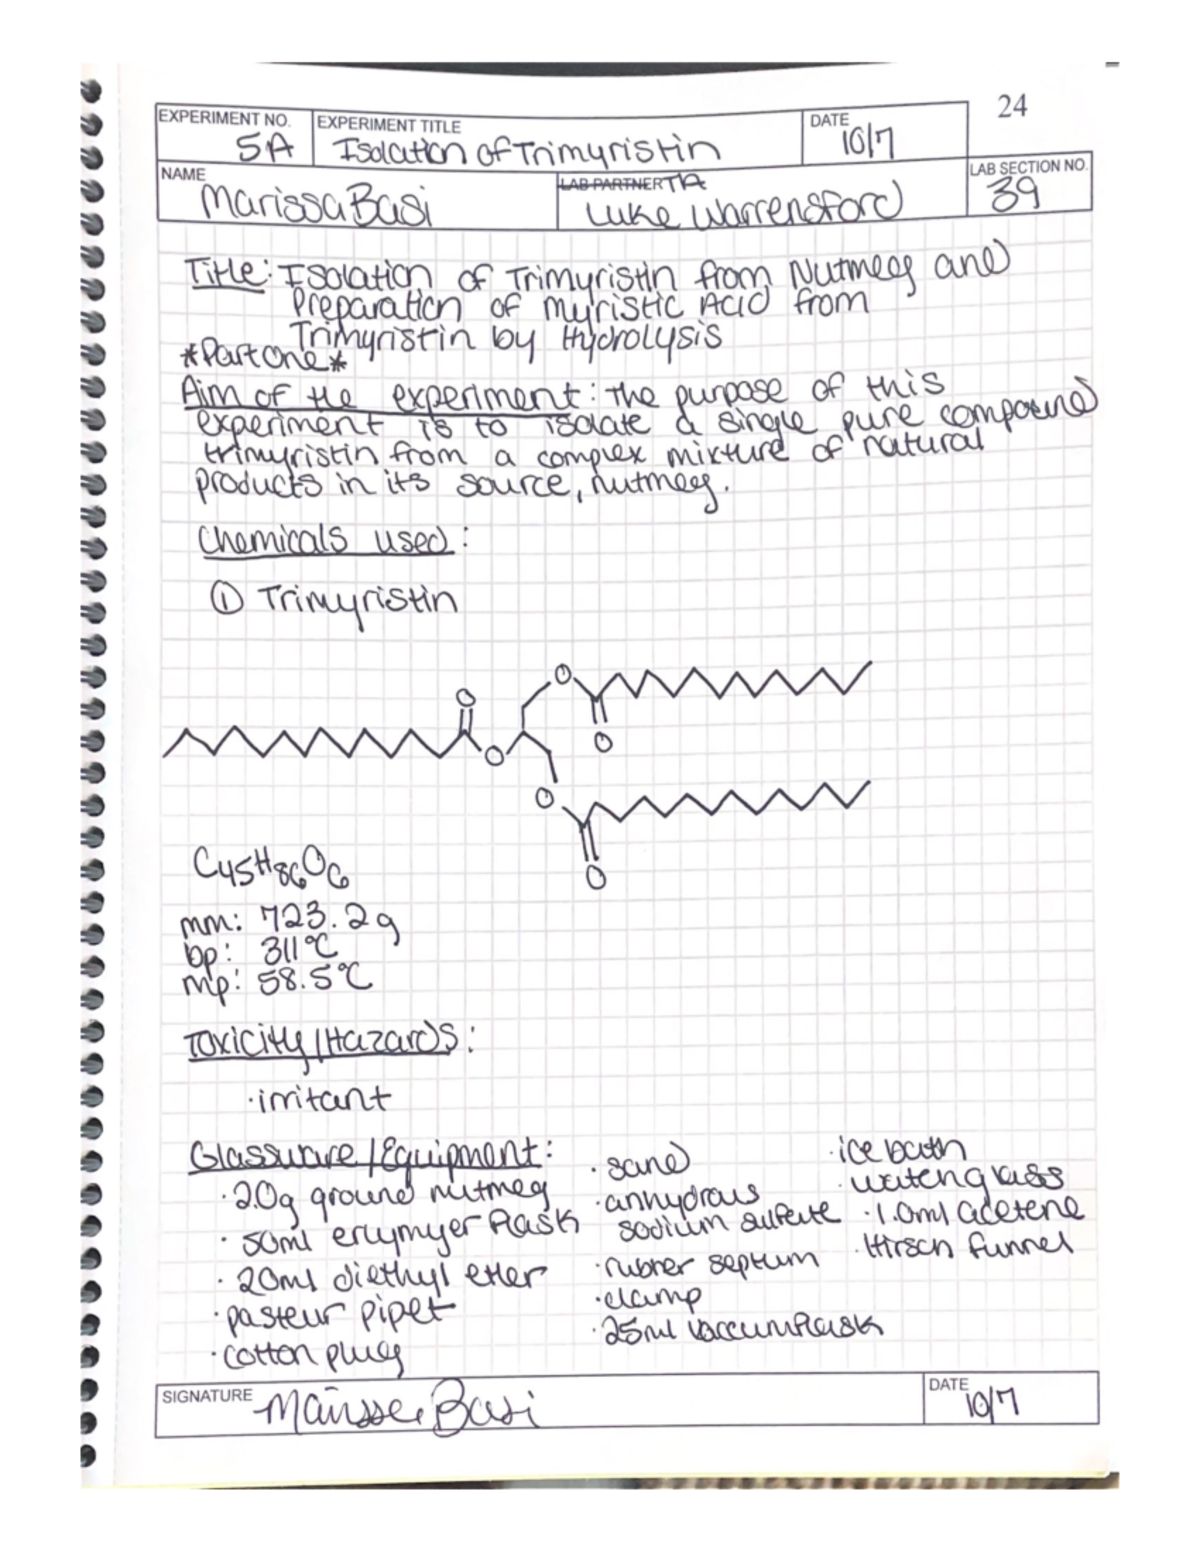 24
EXPERIMENT NO. 5A
EXPERIMENT TITLE Isolation of Trimyristin
DATE 10/7
NAME Marissa Basi
LAB PARTNER TA Luke Warrensford
LAB SECTION NO. 39
Title: Isolation of Trimyristin from Nutmeg and
Preparation of Myristic Acid from
Trimyristin by Hydrolysis
*Part One*
Aim of the experiment: The purpose of this
experiment is to isolate a single pure compound
trimyristin from a complex mixture of natural
products in its source, nutmeg.
Chemicals used:
① Trimyristin
O
O
O
O
O
O
C45H86O6
mm: 723.2g
bp: 311°C
mp: 58.5°C
Toxicity/Hazards:
·irritant
Glassware/Equipment:
·2.0g ground nutmeg
·50ml erlymyer flask
·20ml diethyl ether
·pasteur pipet
·cotton plug
·sand
·anhydrous
sodium sulfate
·rubber septum
·clamp
·25ml vaccum flask
·ice bath
·watch glass
·1.0ml acetene
·Hirsch funnel
SIGNATURE Marissa Basi
DATE 10/7